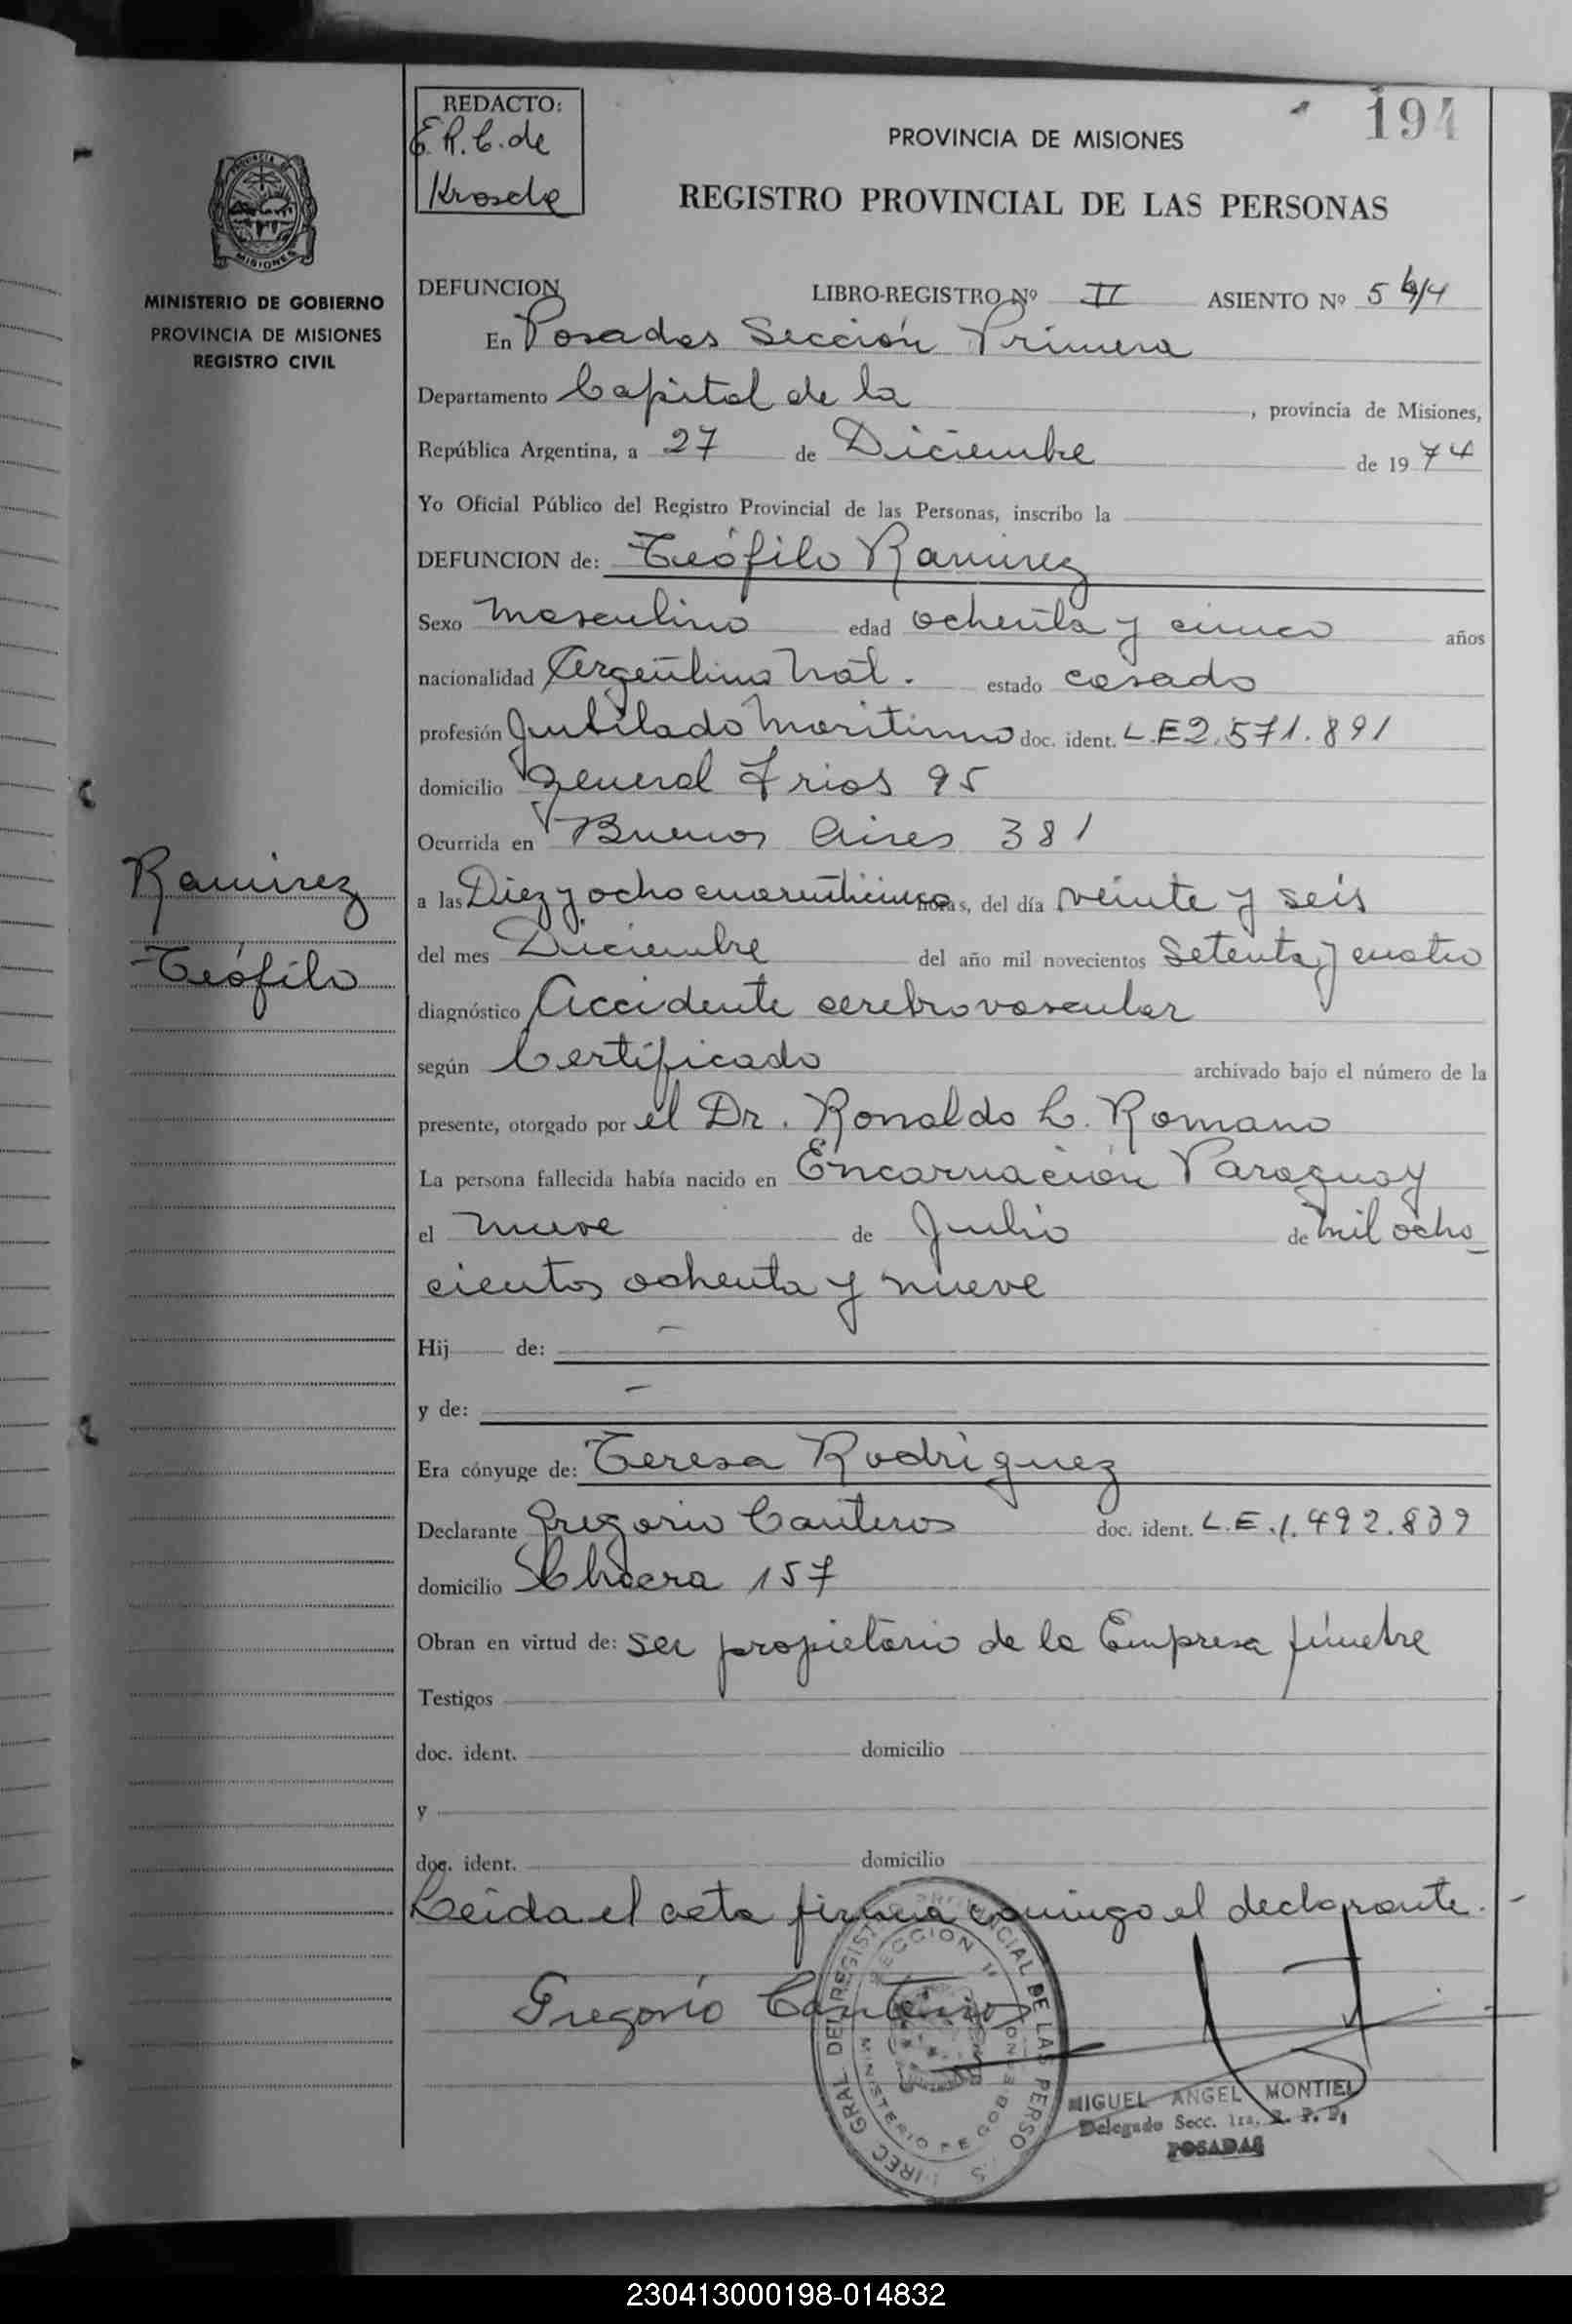 REDACTO:
E.R.C. de
194
PROVINCIA DE MISIONES
REGISTRO PROVINCIAL DE LAS PERSONAS
PROVINCIA DE
MISIONES
MINISTERIO DE GOBIERNO
PROVINCIA DE MISIONES
REGISTRO CIVIL
DEFUNCION LIBRO-REGISTRO Nº II ASIENTO Nº
En Posadas Sección Primera
Departamento Capital de la , provincia de Misiones,
República Argentina, a 27 de Diciembre de 1974
Yo Oficial Público del Registro Provincial de las Personas, inscribo la
DEFUNCION de: Teófilo Ramirez
Sexo Masculino edad ochenta y cinco años
nacionalidad Argentino Nat. estado casado
profesión Jubilado Maritimo doc. ident. L.E 2.571.891
domicilio General Frias 95
Ocurrida en Buenos Aires 381
Ramirez
a las Diez y ocho cuarenticinco horas, del día veinte y seis
Teófilo
del mes Diciembre del año mil novecientos Setenta y cuatro
diagnóstico Accidente cerebrovascular
según Certificado archivado bajo el número de la
presente, otorgado por el Dr. Ronaldo L. Romano
La persona fallecida había nacido en Encarnación Paraguay
el nueve de Julio de mil ocho
cientos ochenta y nueve
Hij de: -
y de: -
Era cónyuge de: Teresa Rodriguez
Declarante Gregorio Canteros doc. ident. L.E.1.492.839
domicilio 157
Obran en virtud de: ser propietario de la Empresa fúnebre
Testigos
doc. ident. domicilio
y
doc. ident. domicilio
Leida el acta firma conmigo el declarante.-
Gregorio Canteros
DIREC. GRAL. DEL REGISTRO PROVINCIAL DE LAS PERSO S
SECCION 1ª
MINISTERIO DE GOBIE
MIGUEL ANGEL MONTIEL
Delegado Secc. 1ra. R. P. P.
POSADAS
230413000198-014832